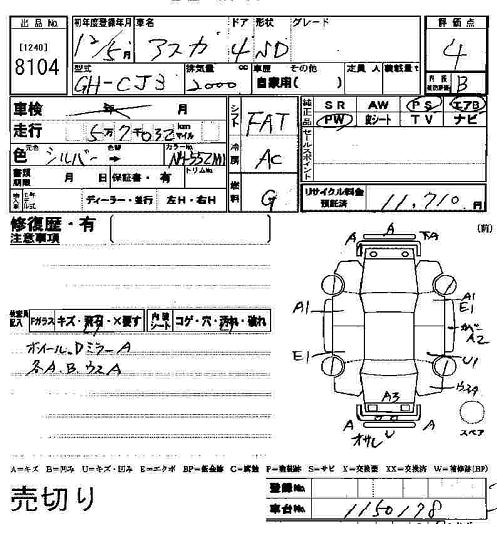 出品No. 初年度登録年月 車名 ドア 形状 グレード 評価点
[1240] 12/5月 アスカ 4 SD 4
8104 型式 排気量 cc 車歴 その他 定員 人 積載量 t
GH-CJ3 2000 自家用( ) B
車検 年 月 シフト FAT 純正品 SR AW PS エアB
走行 5万7千032 km マイル PW 皮シート TV ナビ
色 元色 シルバー 色替 → カラーNo. NH-552M 冷房 AC セールスポイント
書類期限 月 日 保証書・有 トリムNo. 燃料 G リサイクル料金預託済 11,710 円
ディーラー・並行 左H・右H
修復歴・有
注意事項
(前)
A A 下A
A1 A1
E1
A2
E1 U1
A3 ウスA
A A
オサレ U
スペア
検査員記入 Fガラス キズ・飛石・×要す 内装シート コゲ・穴・汚れ・破れ
ホイール、DミラーA
各A、B、ウスA
A=キズ B=凹み U=キズ・凹み E=エクボ BP=鈑金跡 C=腐蝕 P=塗装跡 S=サビ X=交換要 XX=交換済 W=補修跡(BP)
売切り
登録No.
車台No. 1150178